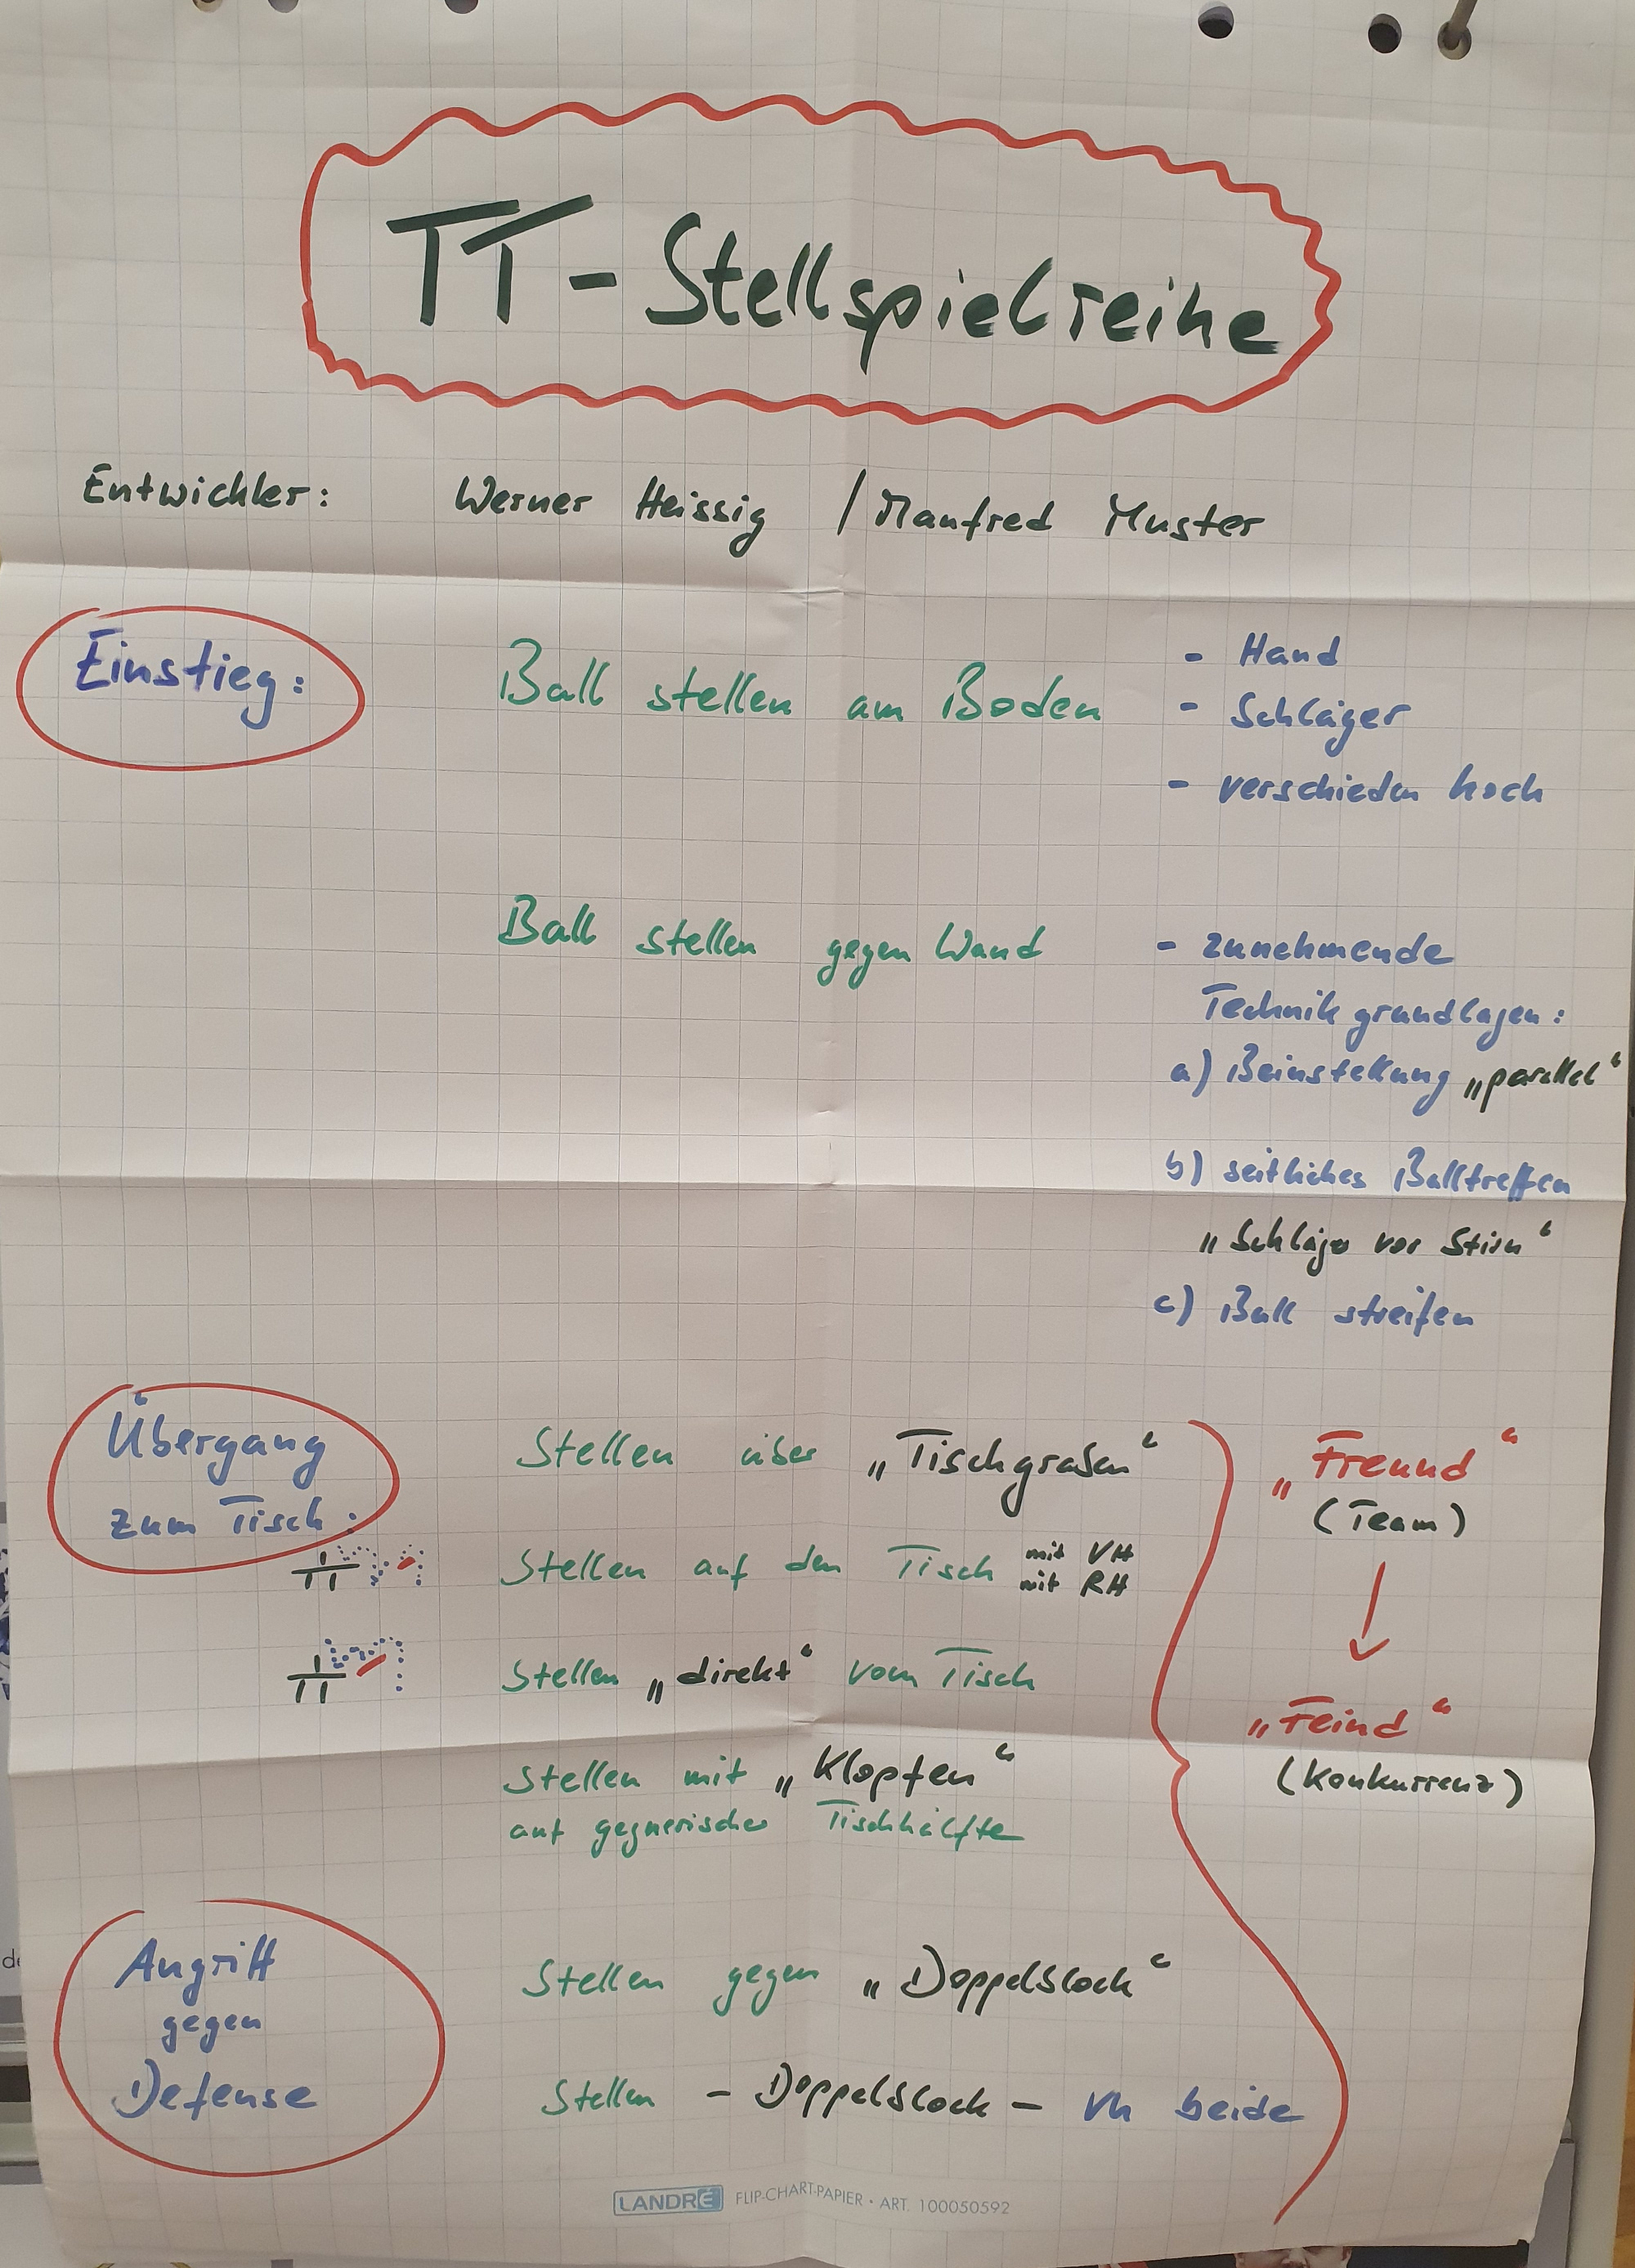 TT-Stellspielreihe
Entwickler: Werner Heissig / Manfred Muster
Einstieg: Ball stellen am Boden
- Hand
- Schläger
- verschieden hoch
Ball stellen gegen Wand
- zunehmende
Technikgrundlagen:
a) Beinstellung „parallel“
b) seitliches Balltreffen
„Schläger vor Stirn“
c) Ball streifen
Übergang
zum Tisch:
Stellen über „Tischgraben“
Stellen auf den Tisch mit VH
mit RH
Stellen „direkt“ vom Tisch
Stellen mit „Klopfen“
auf gegnerischer Tischhälfte
„Freund“
(Team)
„Feind“
(Konkurrenz)
Angriff
gegen
Defense
Stellen gegen „Doppelblock“
Stellen - Doppelblock - Vh beide
LANDRÉ FLIP-CHART-PAPIER • ART. 100050592